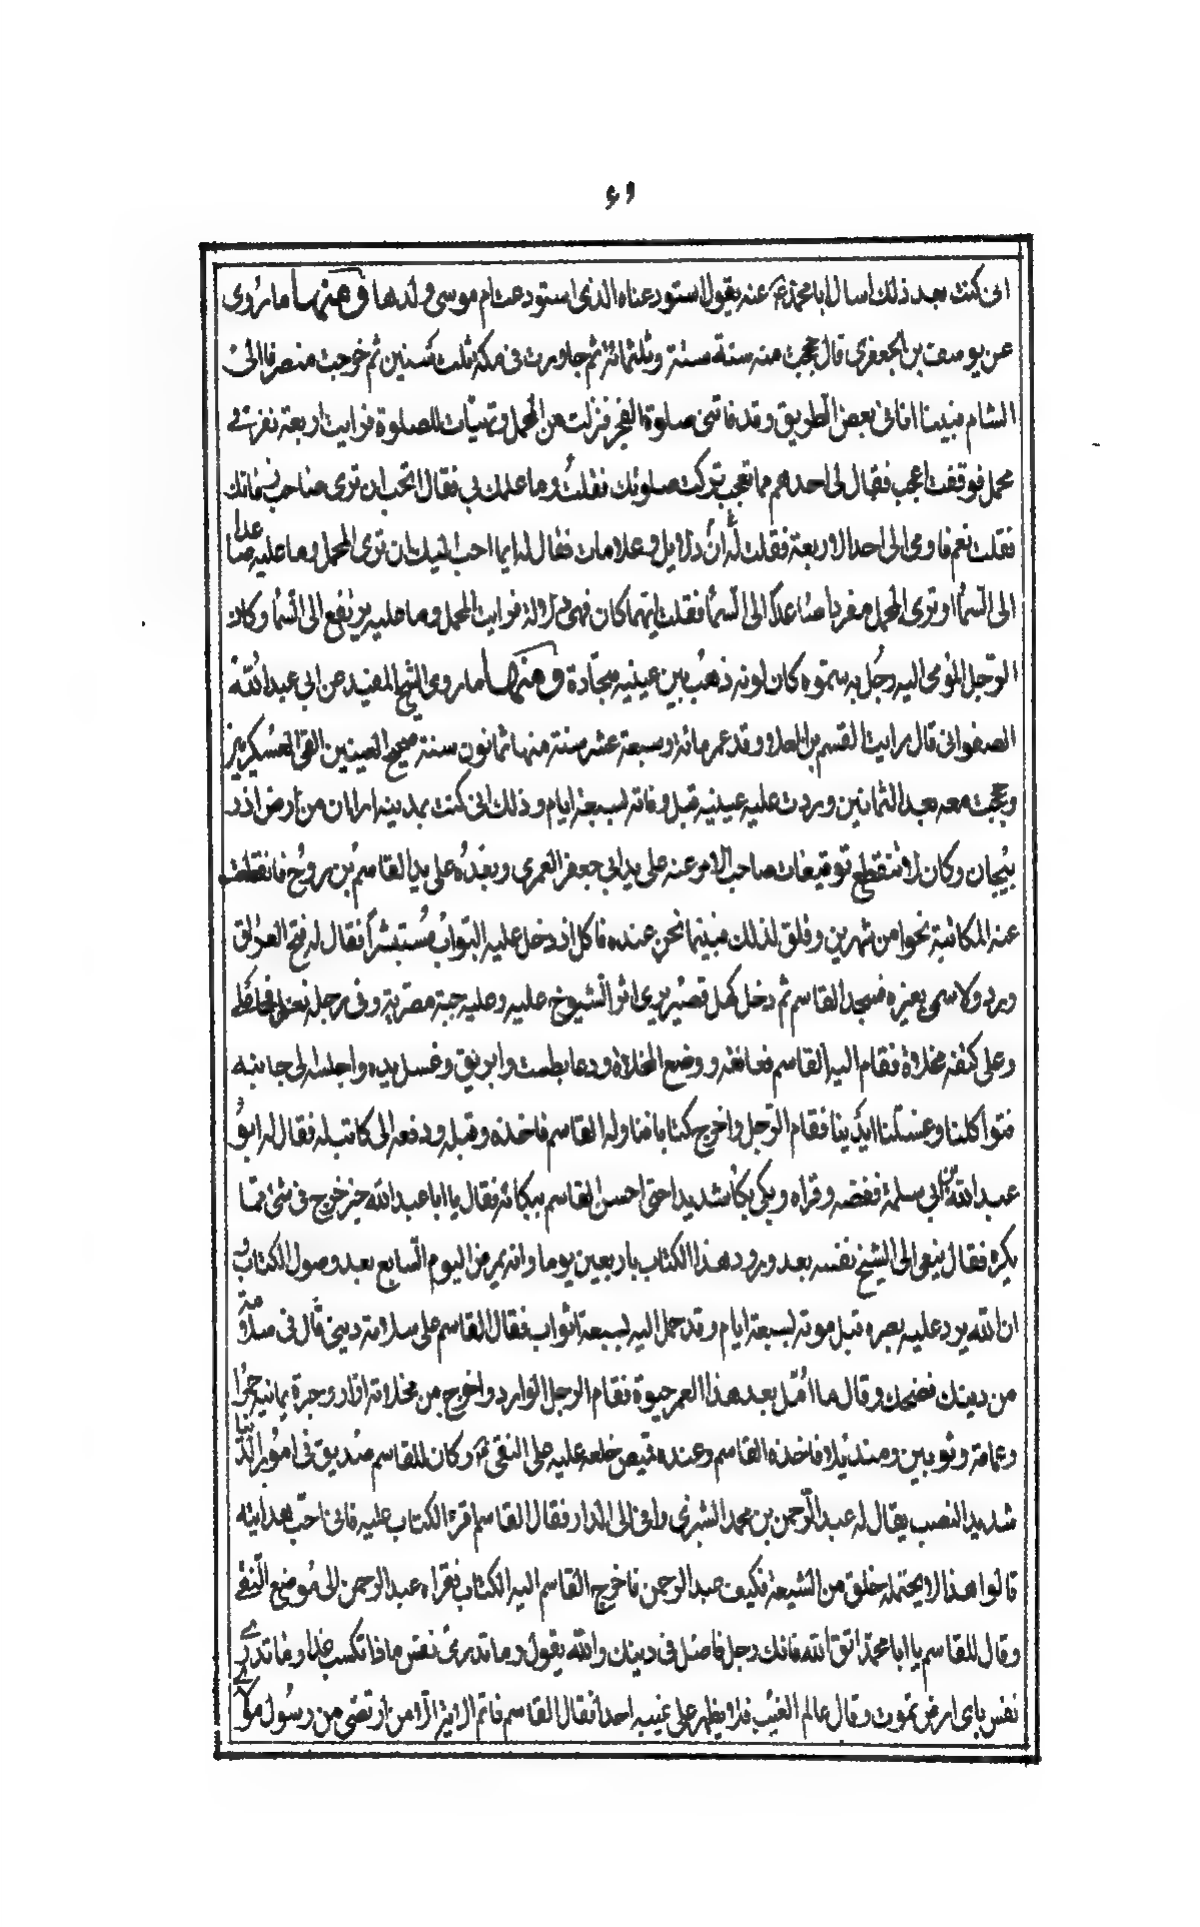 انى كنت بعد ذلك اسال ابا محمد ع عنه يقول استودعناه الذى استودعت ام موسى ولدها ومنها ما روى
عن يوسف بن الجعفرى قال حججت منه سنة ستة وثلثمائة ثم جاورت فى مكة ثلث سنين ثم خرجت منصرفا الى
الشام فبينا انا فى بعض الطريق وقد فاتتنى صلوة الفجر فنزلت من المحمل وتهيأت للصلوة فرايت اربعة نفر فى
محمل فوقفت اعجب فقال لى احدهم مما تعجب تركت صلوتك فقلت وما علمك بى فقال اتحب ان ترى صاحب زمانك
فقلت نعم فاومى الى احد الاربعة فقلت له ان دلايل وعلامات فقال له ايما احب اليك ان ترى المحمل وما عليه صاعدا
الى السما او ترى المحمل مفردا صاعدا الى السما فقلت ايتهما كان فهى دلالة فرايت المحمل وما عليه يرتفع الى السما وكان
الرجل المومى اليه رجل به سمرة وكان لونه ذهب بين عينيه سجادة ومنها ما روى الشيخ المفيد عن ابى عبد الله
الصفوانى قال رايت القسم بن العلا وقد عمر مائة وسبعة عشر سنة منها ثمانون سنة صحيح العينين لقى العسكريين
وحججت معه بعد الثمانين وردت عليه عينيه قبل وفاته بسبعة ايام وذلك انى كنت بمدينة اراان من ارض اذر
بيجان وكان لا تنقطع توقيعات صاحب الامر عنه على يد ابى جعفر العمرى وبعده على يد القاسم بن روح فانقطعت
عنه المكاتبة نحوا من شهرين وقلق لذلك فبينما نحن عنده ناكل اذ دخل عليه البواب مستبشرا فقال له فيج العراق
ورد ولا سمى بغيره فسجد القاسم ثم دخل كهل قصير يرى اثر الشيوخ عليه وعليه جبة مضربة وفى رجله نعل محاملى
وعلى كتفه مخلاة فقام اليه القاسم فعانقه ووضع المخلاة ودعا بطست وابريق وغسل يده واجلسه الى جانبه
فتواكلنا وغسلنا ايدينا فقام الرجل واخرج كتابا فناوله القاسم فاخذه وقبله ودفعه الى كاتب له فقال له ابو
عبد الله بن ابى سلمة ففضه وقراه وبكى بكاء شديدا حتى احسن القاسم ببكائه فقال يا ابا عبد الله خير خرج فى شئ مما
يكره فقال ينعى الى الشيخ نفسه بعد ورود هذا الكتاب باربعين يوما وانه يمرض اليوم السابع بعد وصول الكتاب و
ان الله يرد عليه بصره قبل موته بسبعة ايام وقد حمل اليه بسبعة اثواب فقال القاسم على سلامة دينى قال فى سلامة
من دينك فضحك وقال ما اؤمل بعد هذا العمر حيوة فقام الرجل الوارد واخرج من مخلاته ازار وحبرة يمانية حمرا
وعمامة وثوبين ومنديلا فاخذه القاسم وعنده قميص خلعه عليه على النقى ع وكان للقاسم صديق فى امور الدنيا
شديد النصب يقال له عبد الرحمن بن محمد الشيرى وافى الى الدار فقال القاسم اقرء الكتاب عليه فانى احب هدايته
قالوا هذا لا يحتمله خلق من الشيعة فكيف عبد الرحمن فاخرج القاسم اليه الكتاب فقراه عبد الرحمن الى موضع النعى
وقال للقاسم يا ابا محمد اتق الله فانك رجل فاضل فى دينك والله يقول وما تدرى نفس ماذا تكسب غدا وما تدرى
نفس باى ارض تموت وقال عالم الغيب فلا يظهر على غيبه احدا فقال القاسم فاتم الاية الا من ارتضى من رسول مولاى